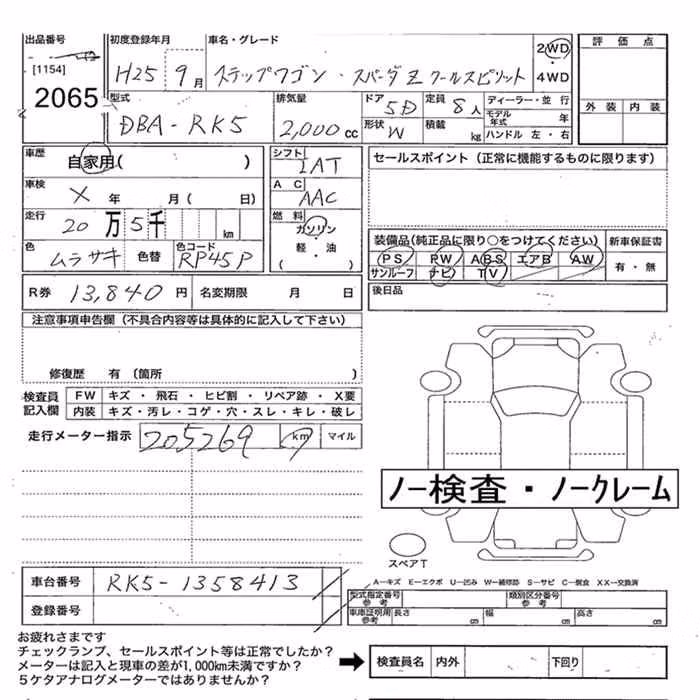 出品番号
[1154]
2065
初度登録年月
H25 9月
車名・グレード
ステップワゴン・スパーダ Z クールスピリット
2WD
4WD
評価点
外装 内装
型式
DBA-RK5
排気量
2,000cc
ドア 5D
形状 W
定員 8人
積載 kg
ディーラー・並行
モデル年式 年
ハンドル 左・右
車歴
自家用( )
車検
X 年 月( 日)
走行
20万5千 km
色
ムラサキ
色替
色コード
RP45P
シフト
IAT
AC
AAC
燃料
ガソリン
軽・油
セールスポイント(正常に機能するものに限ります)
装備品(純正品に限り○をつけてください)
新車保証書
PS PW ABS エアB AW
サンルーフ ナビ TV
有・無
R券 13,840円 名変期限 月 日
後日品
注意事項申告欄(不具合内容等は具体的に記入して下さい)
修復歴 有(箇所 )
検査員記入欄
FW キズ・飛石・ヒビ割・リペア跡・X要
内装 キズ・汚レ・コゲ・穴・スレ・キレ・破レ
走行メーター指示 205269 km マイル
ノー検査・ノークレーム
スペアT
車台番号 RK5-1358413
登録番号
A-キズ E-エクボ U-凹み W-補修跡 S-サビ C-腐食 XX-交換済
型式指定番号
参考
類別区分番号
参考
車庫証明用
参考
長さ cm 幅 cm 高さ cm
お疲れさまです
チェックランプ、セールスポイント等は正常でしたか?
メーターは記入と現車の差が1,000km未満ですか?
5ケタアナログメーターではありませんか?
検査員名 内外 下回り